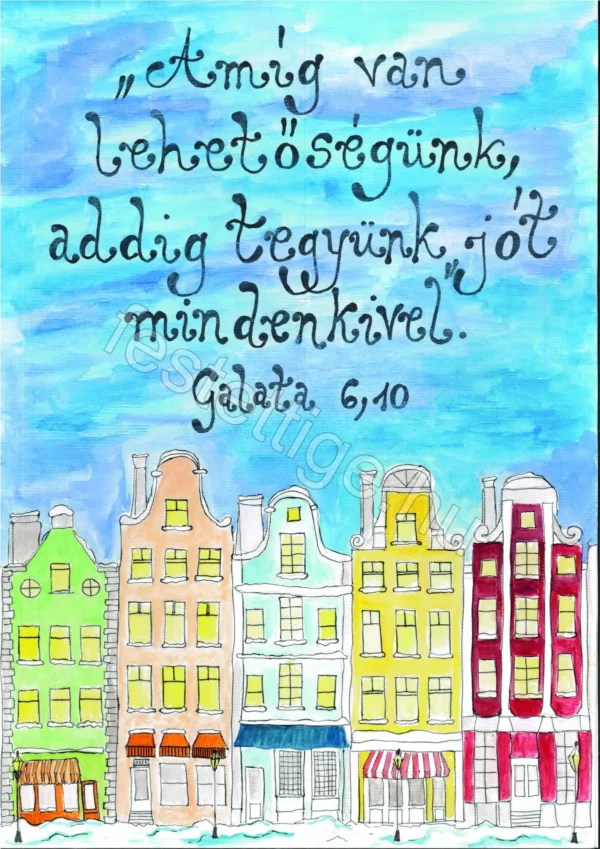 „Amíg van
lehetőségünk,
addig tegyünk jót
mindenkivel.”
Galata 6,10
festettige.hu